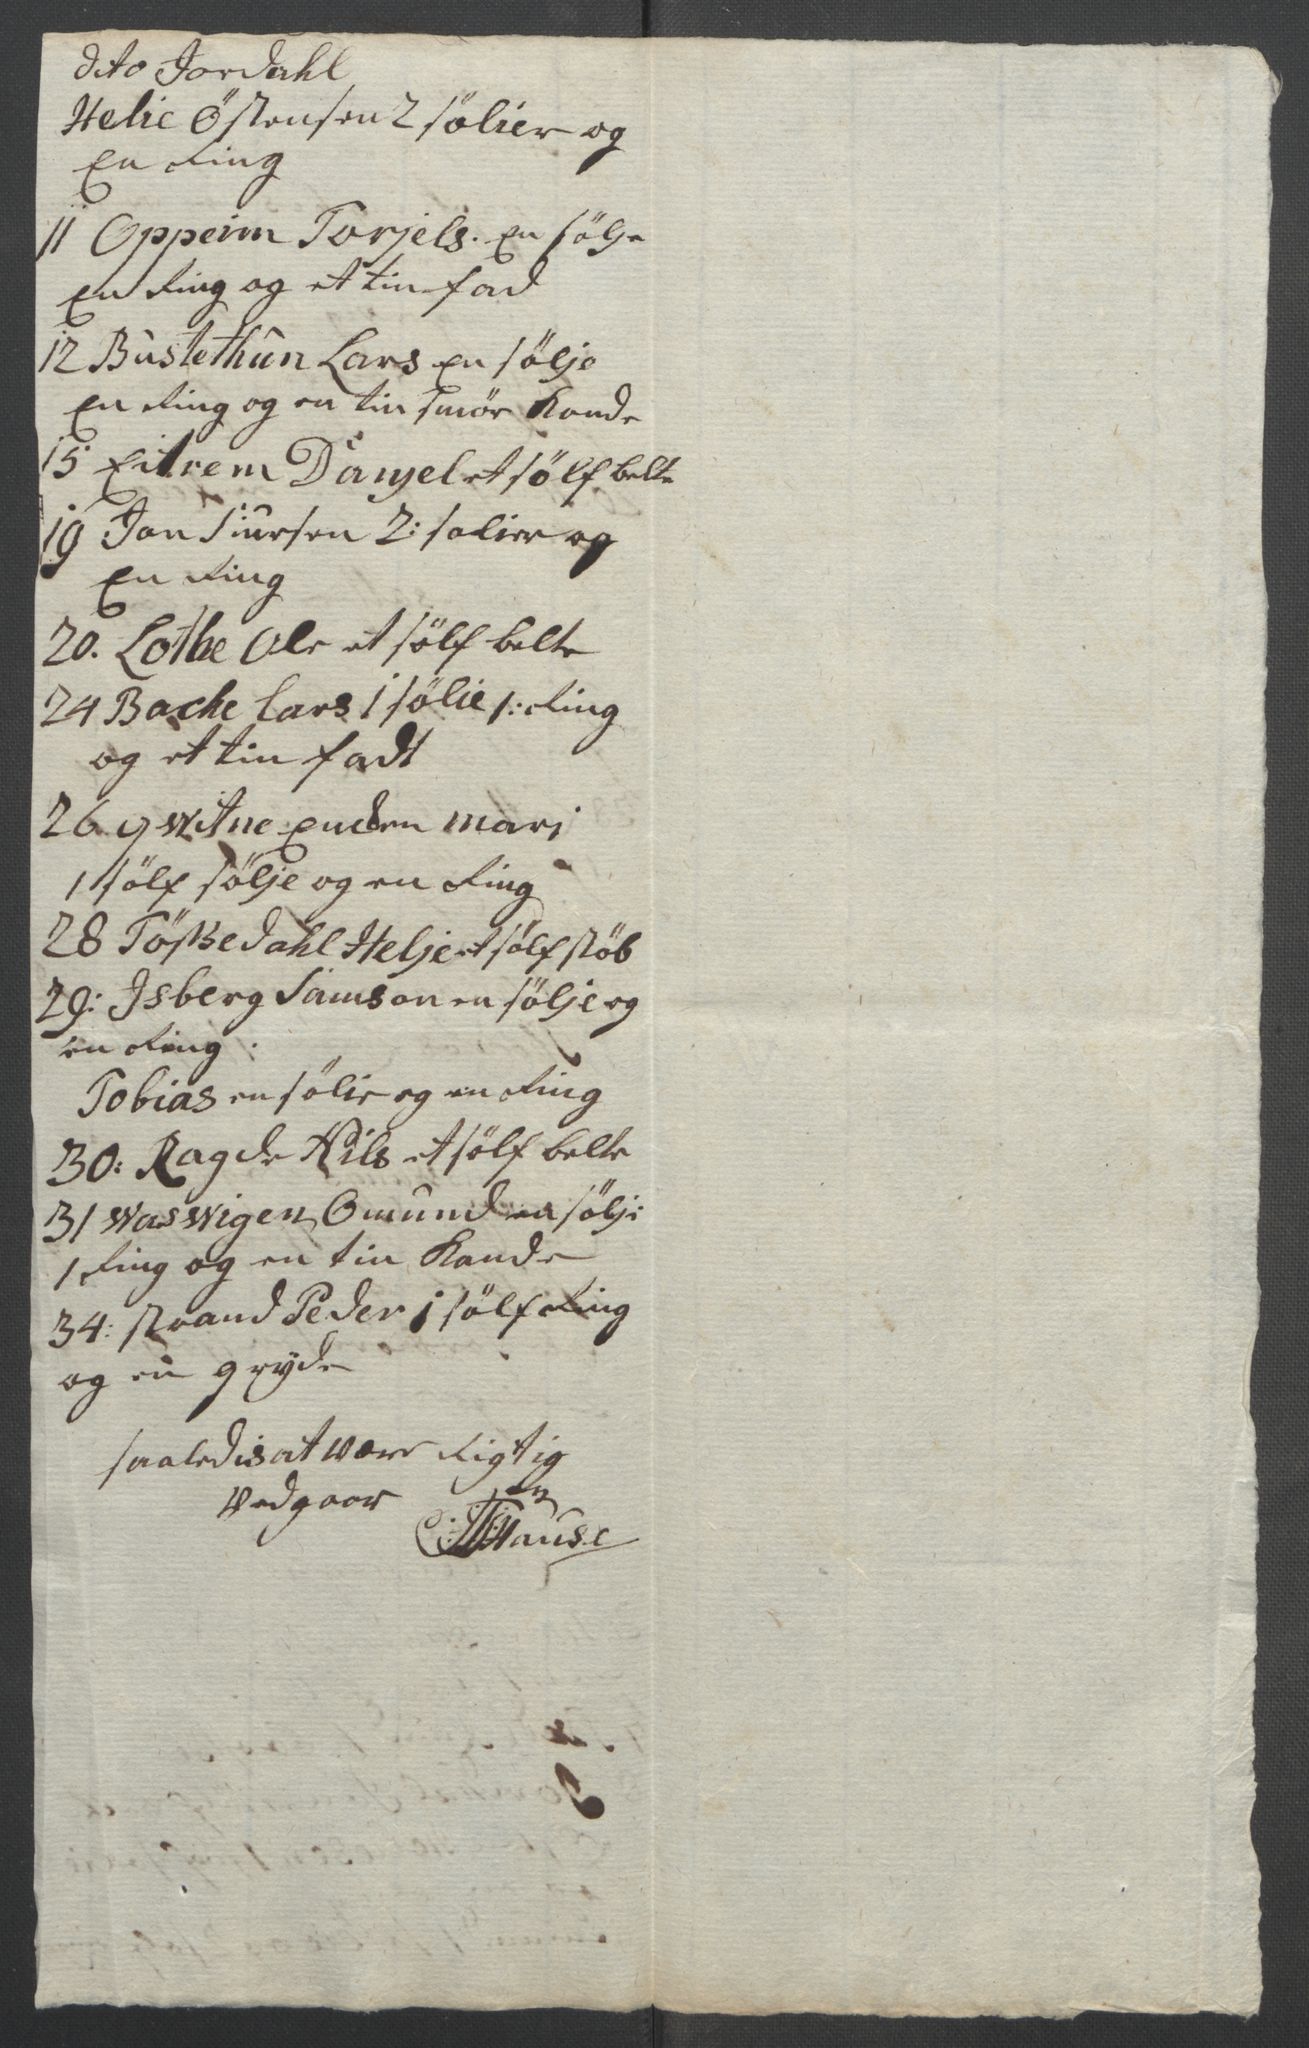 dito Jordahl
Helie Östensen 2 sölier og
En Ring
11 Oppeim Torjels. en sölje
en Ring og et tin fad
12 Bustethun Lars en sölje
en Ring og en tin smör Kande
15 Eitrem Danjel et sölf belte
19 Jon Siursen 2: solier og
En Ring
20. Lothe Ole et sölf belte
24 Bache Lars 1 sölie 1: Ring
og et tin fadt
26 qwitne Encken mari
1 sölf sölje og en Ring
28 Tössedahl Helje et sölf stöb
29: Isberg Samson en sölje og
en Ring :
Tobias en sölie og en Ring
30: Ragde Nils et sölf belte
31 waswigen Omund en sölje
1 Ring og en tin Kande
34: strand Peder 1 sölf Ring
og en gryde
saaledis at were Rigtig
wedgaar
Hause